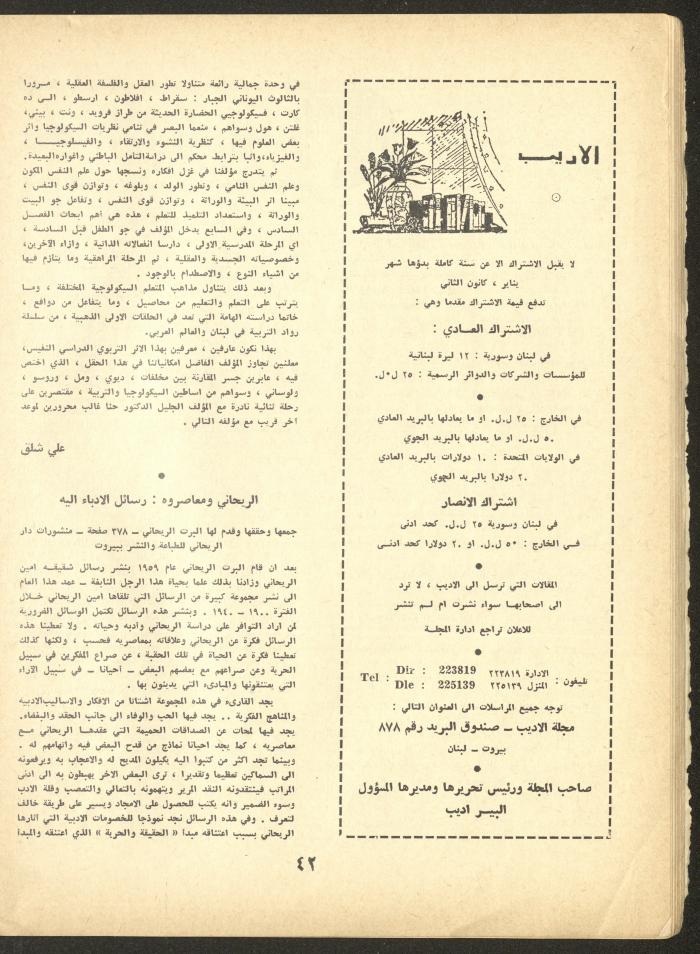 الاديب
لا يقبل الاشتراك الا عن سنة كاملة بدؤها شهر
يناير ، كانون الثاني
تدفع قيمة الاشتراك مقدما وهي :
الاشتراك العادي :
في لبنان وسورية : ١٢ ليرة لبنانية
للمؤسسات والشركات والدوائر الرسمية : ٢٥ ل.ل.
●
في الخارج : ٢٥ ل.ل. او ما يعادلها بالبريد العادي
٥٠ ل.ل. او ما يعادلها بالبريد الجوي
في الولايات المتحدة : ١٠ دولارات بالبريد العادي
٢٠ دولارا بالبريد الجوي
اشتراك الانصار
في لبنان وسورية ٢٥ ل.ل. كحد ادنى
فـي الخارج : ٥٠ ل.ل. او ٢٠ دولارا كحد ادنـى
●
المقالات التي ترسل الى الاديب ، لا ترد
الى اصحابها سواء نشرت ام لـم تنشر
للاعلان تراجع ادارة المجلـة
●
تليفون : الادارة ٢٢٣٨١٩ Dir : 223819
المنزل ٢٢٥١٣٩ Dle : 225139 Tel :
توجه جميع المراسلات الى العنوان التالي :
مجلة الاديب ــ صندوق البريد رقم ٨٧٨
بيروت ــ لبنان
●
صاحب المجلة ورئيس تحريرها ومديرها المسؤول
البيـر اديب
في وحدة جمالية رائعة متناولا تطور العقل والفلسفة العقلية ، مـرورا
بالثالوث اليوناني الجبار : سقراط ، افلاطون ، ارسطو ، الـى ده
كارت ، فسيكولوجيي الحضارة الحديثة من طراز فرويد ، ونت ، بيني،
غلتن ، هول وسواهم ، منعما البصر في تنامي نظريات السيكولوجيا واثر
بعض العلوم فيها ، كنظرية النشوء والارتقاء ، والفيسلوجيــا ،
والفيزياء،واتيا بترابط محكم الى دراسةالتامل الباطني واغوارهالبعيدة.
ثم يتدرج مؤلفنا في غزل افكاره ونسجها حول علم النفس المكون
وعلم النفس التامي ، وتطور الولد ، وبلوغه ، وتوازن قوى النفس ،
مبينا اثر البيئة والوراثة ، وتوازن قوى النفس ، وتفاعل جو البيت
والوراثة ، واستعداد التلميذ للتعلم ، هذه هي أهم ابحاث الفصـل
السادس ، وفي السابع يدخل المؤلف في جو الطفل قبل السادسة ،
اي المرحلة المدرسية الاولى ، دارسا انفعالاته الذاتية ، وازاء الآخرين،
وخصوصياته الجسدية والعقلية ، ثم المرحلة المراهقية وما يتأزم فيها
من اشياء النوع ، والاصطدام بالوجود .
وبعد ذلك يتناول مذاهب المتعلم السيكولوجية المختلفة ، ومـا
يترتب على التعلم والتعليم من محاصيل ، وما يتفاعل من دوافع ،
خاتما دراسته الهامة التي تعد في الحلقات الاولى الذهبية ، من سلسلة
رواد التربية في لبنان والعالم العربي.
بهذا نكون عارفين ، معرفين بهذا الاثر التربوي الدراسي النفيس،
معلنين تجاوز المؤلف الفاضل امكانياتنا في هذا الحقل ، الذي اختص
فيه ، عابرين جسر المقارنة بين مخلفات ، ديوي ، ومل ، وروسو ،
ولوساني ، وسواهم من اساطين السيكولوجيا والتربية ، مقتصرين على
رحلة ثنائية نادرة مع المؤلف الجليل الدكتور حنا غالب محرورين لموعد
آخر قريب مع مؤلفه التالي .
علي شلق
●
الريحاني ومعاصروه : رسائل الادباء اليه
جمعها وحققها وقدم لها البرت الريحاني ــ ٣٧٨ صفحة ــ منشورات دار
الريحاني للطباعة والنشر ببيروت
بعد ان قام البرت الريحاني عام ١٩٥٩ بنشر رسائل شقيقـه امين
الريحاني وزادنا بذلك علما بحياة هذا الرجل النابغة ــ عمد هذا العام
الى نشر مجموعة كبيرة من الرسائل التي تلقاها امين الريحاني خـلال
الفترة ١٩٠٠ ــ ١٩٤٠ . وبنشر هذه الرسائل تكتمل الوسائل الضرورية
لمن اراد التوافر على دراسة الريحاني وادبه وحياته . ولا تعطينا هذه
الرسائل فكرة عن الريحاني وعلاقاته بمعاصريه فحسب ، ولكنها كذلك
تعطينا فكرة عن الحياة في تلك الحقبة ، عن صراع المفكرين في سبيل
الحرية وعن صراعهم مع بعضهم البعض ــ أحيانا ــ في سبيل الآراء
التي يعتنقونها والمبادىء التي يدينون بها .
يجد القارىء في هذه المجموعة اشتاتا من الافكار والاساليبالادبيه
والمناهج الفكرية .. يجد فيها الحب والوفاء الى جانب الحقد والبغضاء.
يجد فيها لمحات عن الصداقات الحميمة التي عقدهـا الريحاني مـع
معاصريه ، كما يجد احيانا نماذج من قدح البعض فيه واتهامهم له .
وبينما تجد اكثر من كتبوا اليه يكيلون المديح له والاعجاب به ويرفعونه
الى السماكين تعظيما وتقديرا ، ترى البعض الاخر يهبطون به الى ادنى
المراتب فينتقدونه النقد المرير ويتهمونه بالتعالي والتعصب وقلة الادب
وسوء الضمير وانه يكتب للحصول على الامجاد ويسير على طريقة خالف
لتعرف . وفي هذه الرسائل نجد نموذجا للخصومات الادبية التي اثارها
الريحاني بسبب اعتناقه مبدأ « الحقيقة والحرية » الذي اعتنقه والمبدأ
٤٢